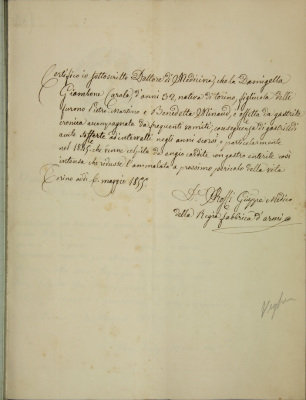 Certifico io sottoscritto Dottore di Medicina, che la Damigella
Carola, d'anni 32, nativa di Torino, figliuola delli
furono Pietro Martino e Benedetta Minaud, è affetta da gastrite
cronica accompagnata da frequenti vomiti, conseguenza di gastritidi
acute sofferte ad intervalli negli anni scorsi, e particolarmente
nel che venne colpita da angio cardite, con gastro enterite così
intensa che ridusse l'ammalata a prossimo pericolo della vita
Torino addì 6 maggio
Giuseppe Medico
della Regia fabbrica d'armi